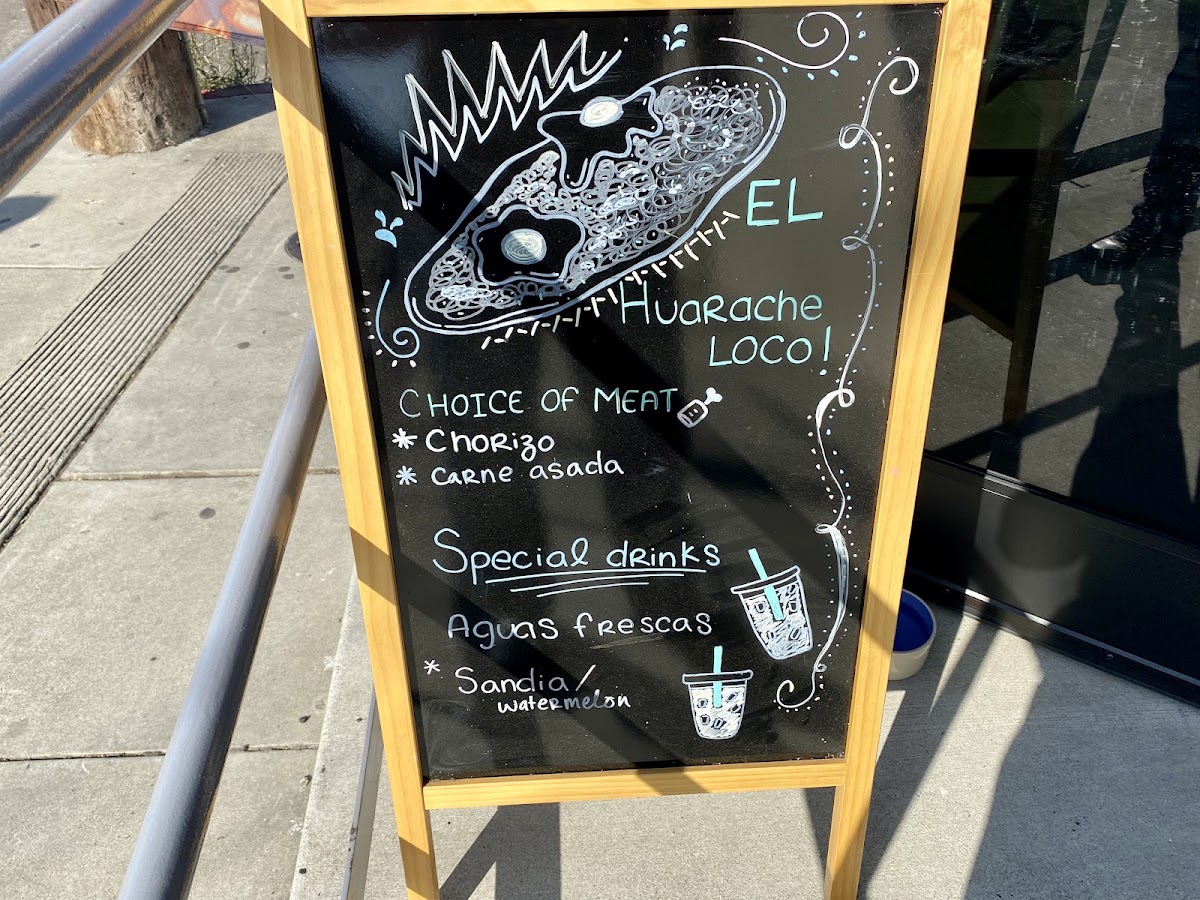 EL
Huarache
Loco!
Choice of Meat
* Chorizo
* Carne asada
Special drinks
Aguas frescas
* Sandia/
watermelon